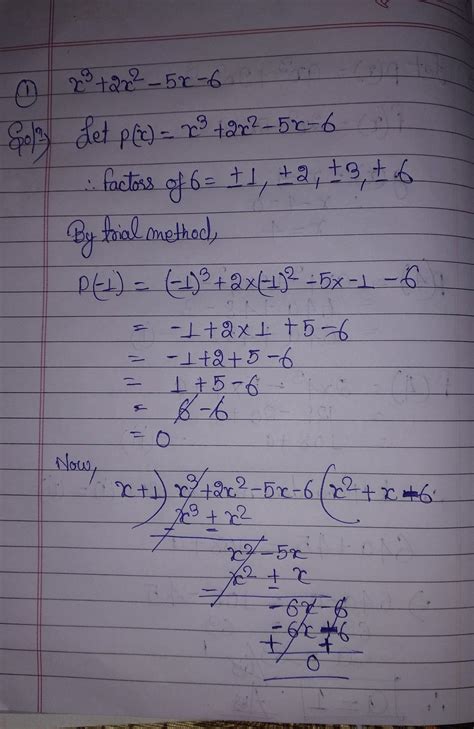 ① x³+2x²-5x-6
Solⁿ, Let p(x) = x³+2x²-5x-6
∴ factors of 6 = ±1, ±2, ±3, ±6
By trial method,
P(-1) = (-1)³+2×(-1)²-5×-1-6
= -1+2×1+5-6
= -1+2+5-6
= 1+5-6
= 6-6
= 0
Now,
x+1) x³+2x²-5x-6 (x²+x-6
x³ + x²
-
x²-5x
x² + x
- -
-6x-6
-6x-6
+ +
0